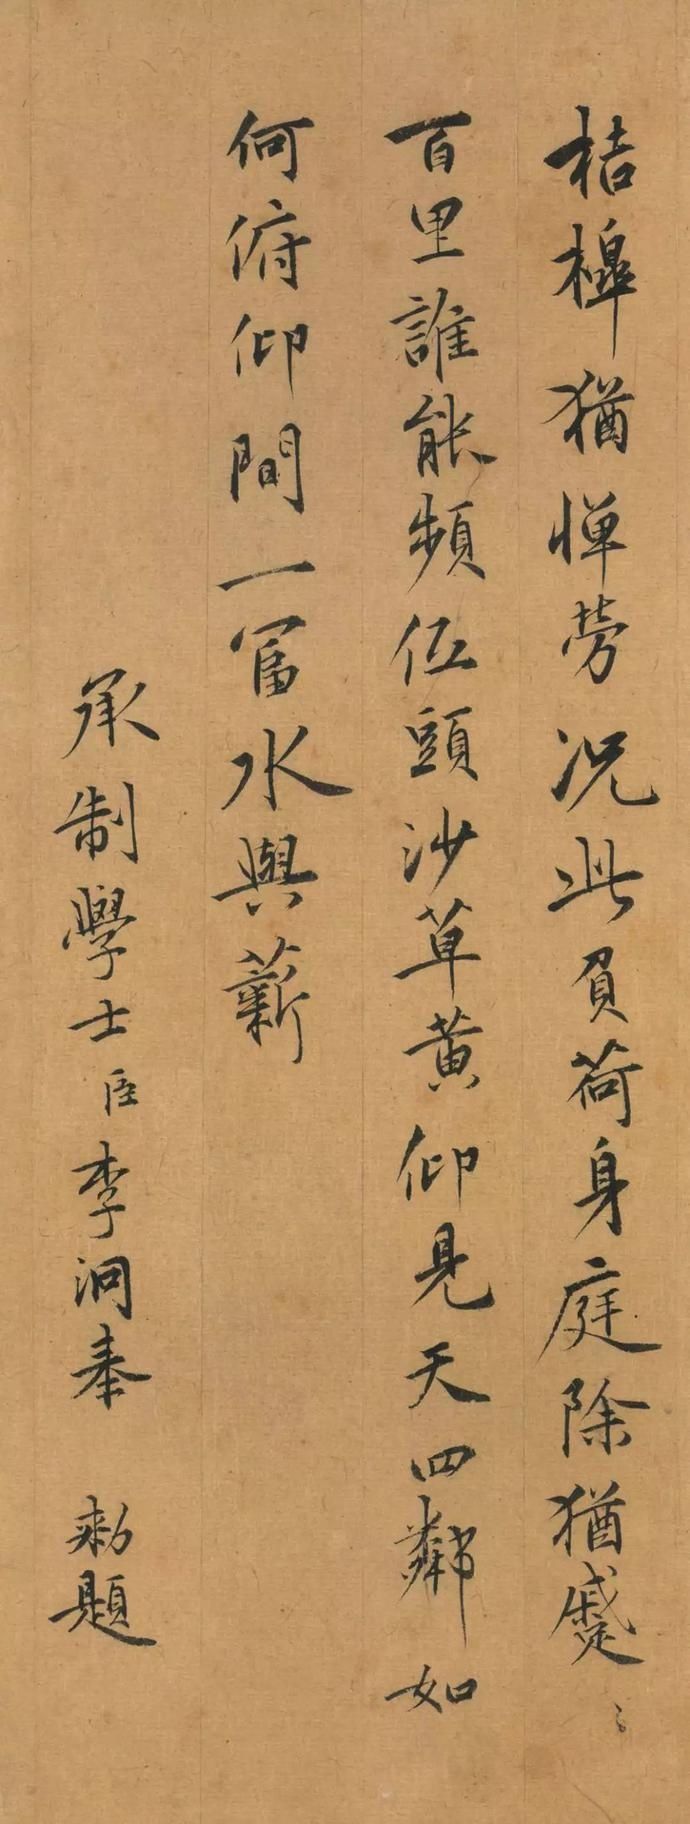 桔槔猶憚勞況此負荷身庭除猶蹙〻
百里誰能頻低頭沙草黃仰見天四鄰如
何俯仰間一富水與薪
承制學士臣李泂奉 敕題